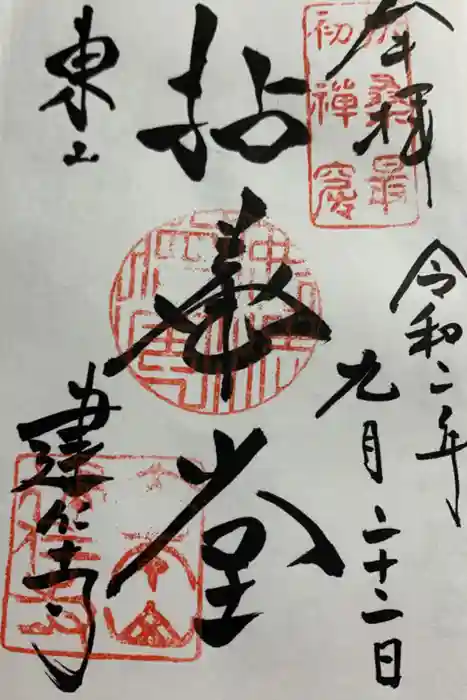 奉拝
扶桑最
初禪窟
令和二年
九月二十二日
拈華堂
東山
建仁寺